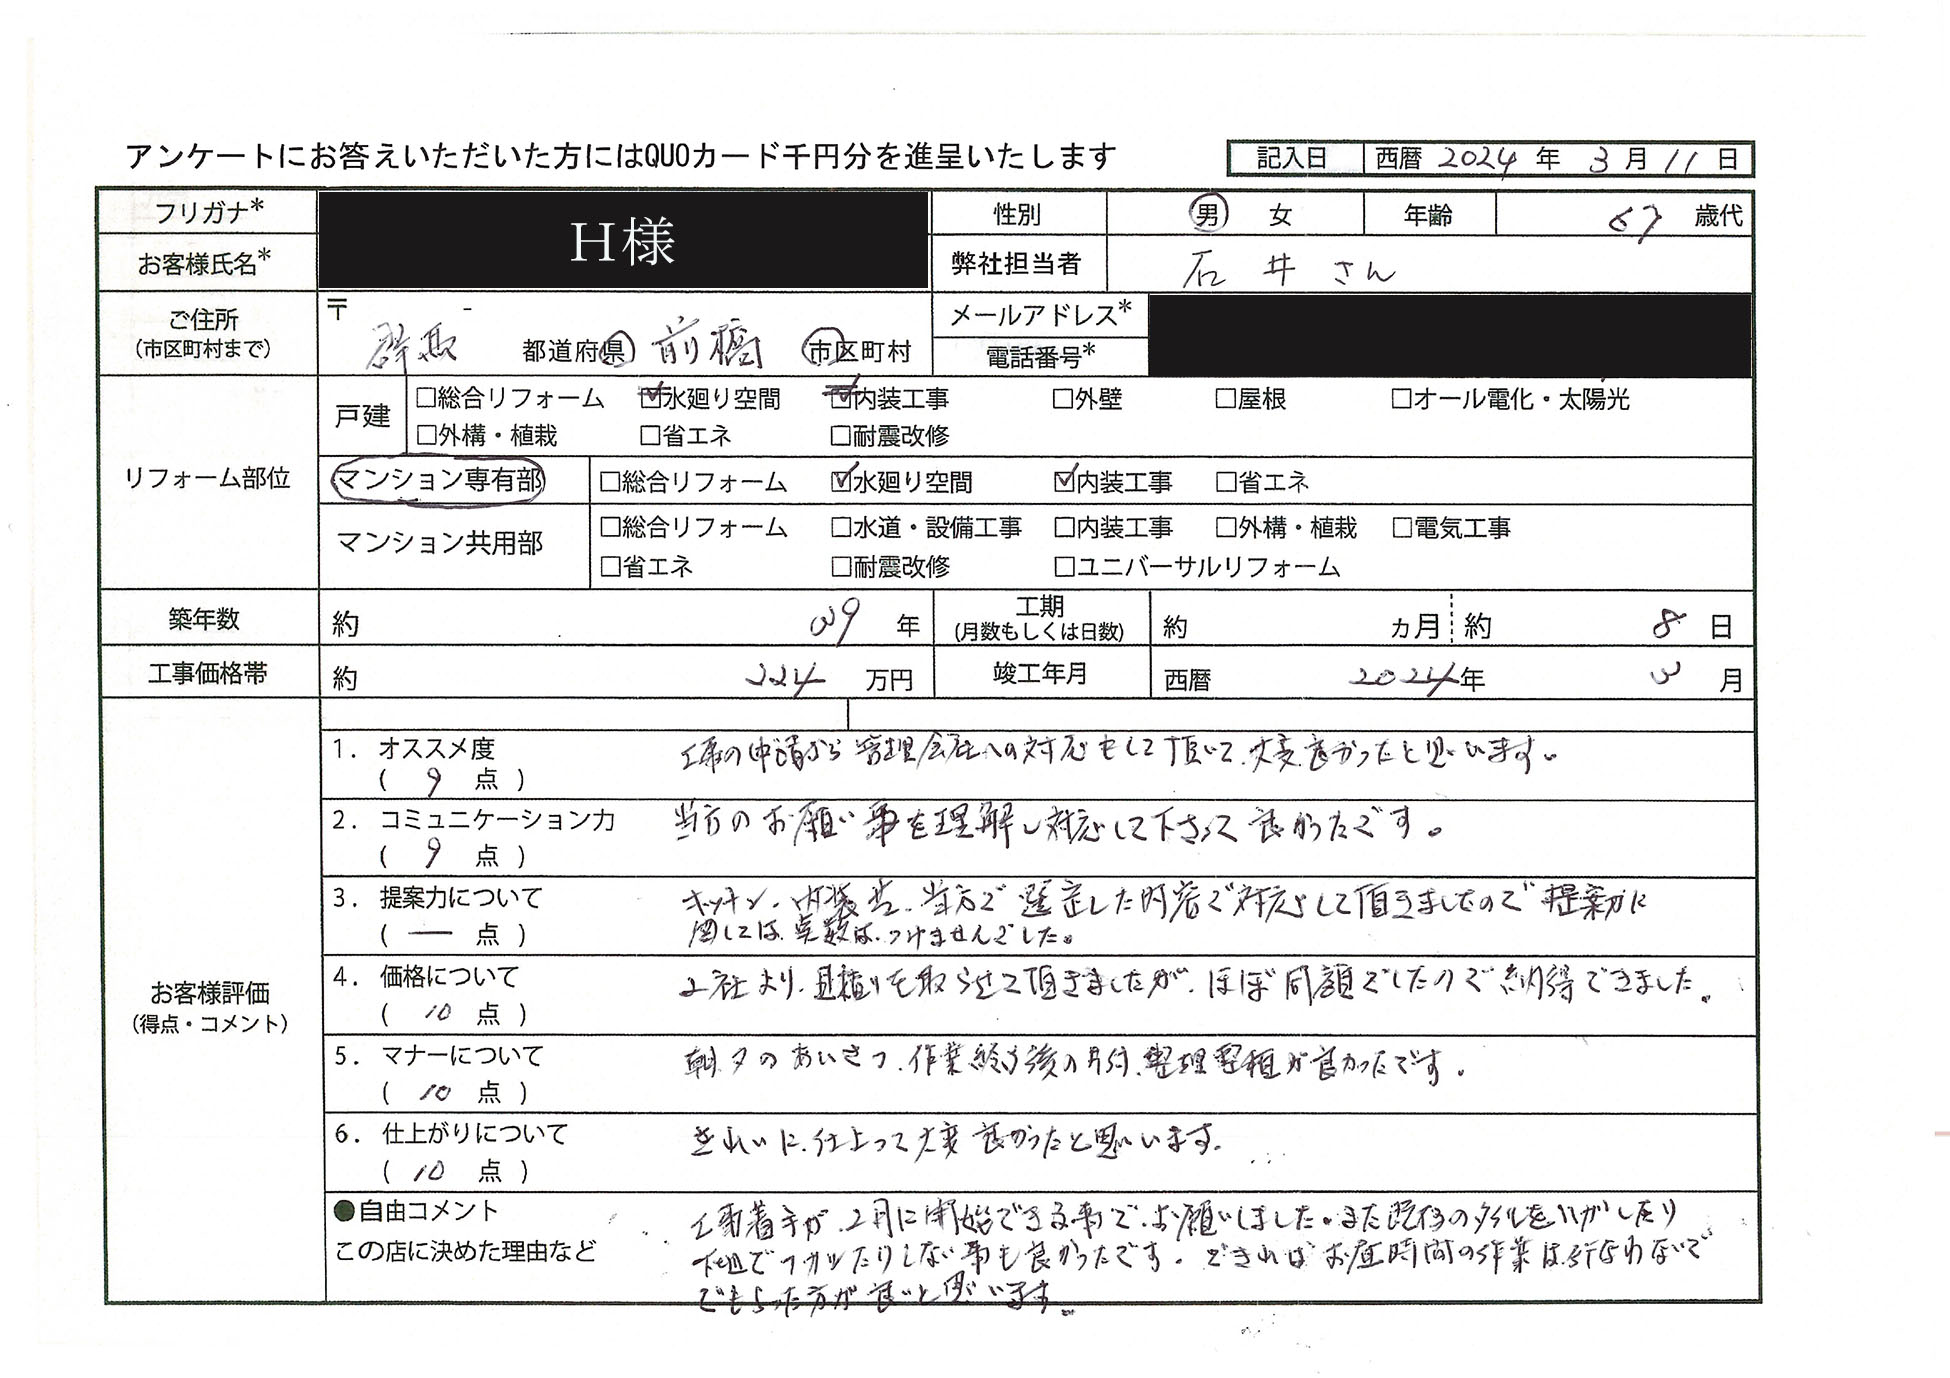 アンケートにお答えいただいた方にはQUOカード千円分を進呈いたします
記入日 西暦 2024 年 3 月 11 日
フリガナ* H様 性別 男 女 年齢 67 歳代
お客様氏名* 弊社担当者 石井さん
ご住所 (市区町村まで) 〒 - 群馬 都道府県 前橋 市区町村
メールアドレス*
電話番号*
リフォーム部位
戸建 □総合リフォーム ☑水廻り空間 ☑内装工事 □外壁 □屋根 □オール電化・太陽光
□外構・植栽 □省エネ □耐震改修
マンション専有部 □総合リフォーム ☑水廻り空間 ☑内装工事 □省エネ
マンション共用部 □総合リフォーム □水道・設備工事 □内装工事 □外構・植栽 □電気工事
□省エネ □耐震改修 □ユニバーサルリフォーム
築年数 約 39 年 工期 (月数もしくは日数) 約 ヵ月 約 8 日
工事価格帯 約 224 万円 竣工年月 西暦 2024年 3 月
お客様評価 (得点・コメント)
1. オススメ度 ( 9 点 )
工事の申請から管理会社への対応もして頂いて、大変良かったと思います。
2. コミュニケーション力 ( 9 点 )
当方のお願い事を理解し対応して下さって良かったです。
3. 提案力について ( ー 点 )
キッチン、内装共、当方で選定した内容で対応して頂きましたので提案力に
関しては、点数は、つけませんでした。
4. 価格について ( 10 点 )
2社より、見積りを取らせて頂きましたが、ほぼ同額でしたので納得できました。
5. マナーについて ( 10 点 )
朝、夕のあいさつ、作業終了後の片付、整理整頓が良かったです。
6. 仕上がりについて ( 10 点 )
きれいに、仕上って大変良かったと思います。
●自由コメント
この店に決めた理由など
工事着手が、2月に開始できる事で、お願いしました。また既存のタイルをはがしたり
下地でフカシたりしない事も良かったです。できればお昼時間の作業は、行なわないで
でもらった方が良いと思います。